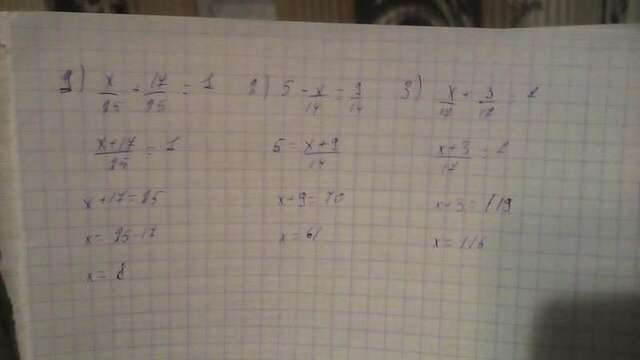 1) x/25 + 17/25 = 1
(x+17)/25 = 1
x+17=25
x= 25-17
x= 8
2) 5 - x/14 = 9/14
5 = (x+9)/14
x+9=70
x=61
3)
x+3=119
x=116